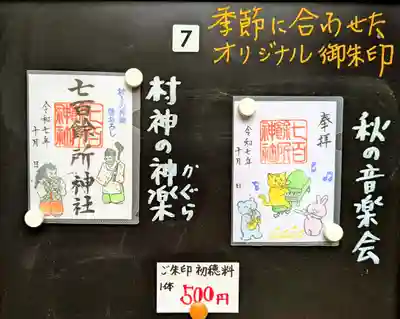 7
季節に合わせた
オリジナル御朱印
七百餘所神社
七百餘所神社
令和七年
十月 日
村神の神楽
かぐら
奉拝
七百餘所神社
令和七年
十月 日
秋の音楽会
ご朱印 初穂料
1体 500円